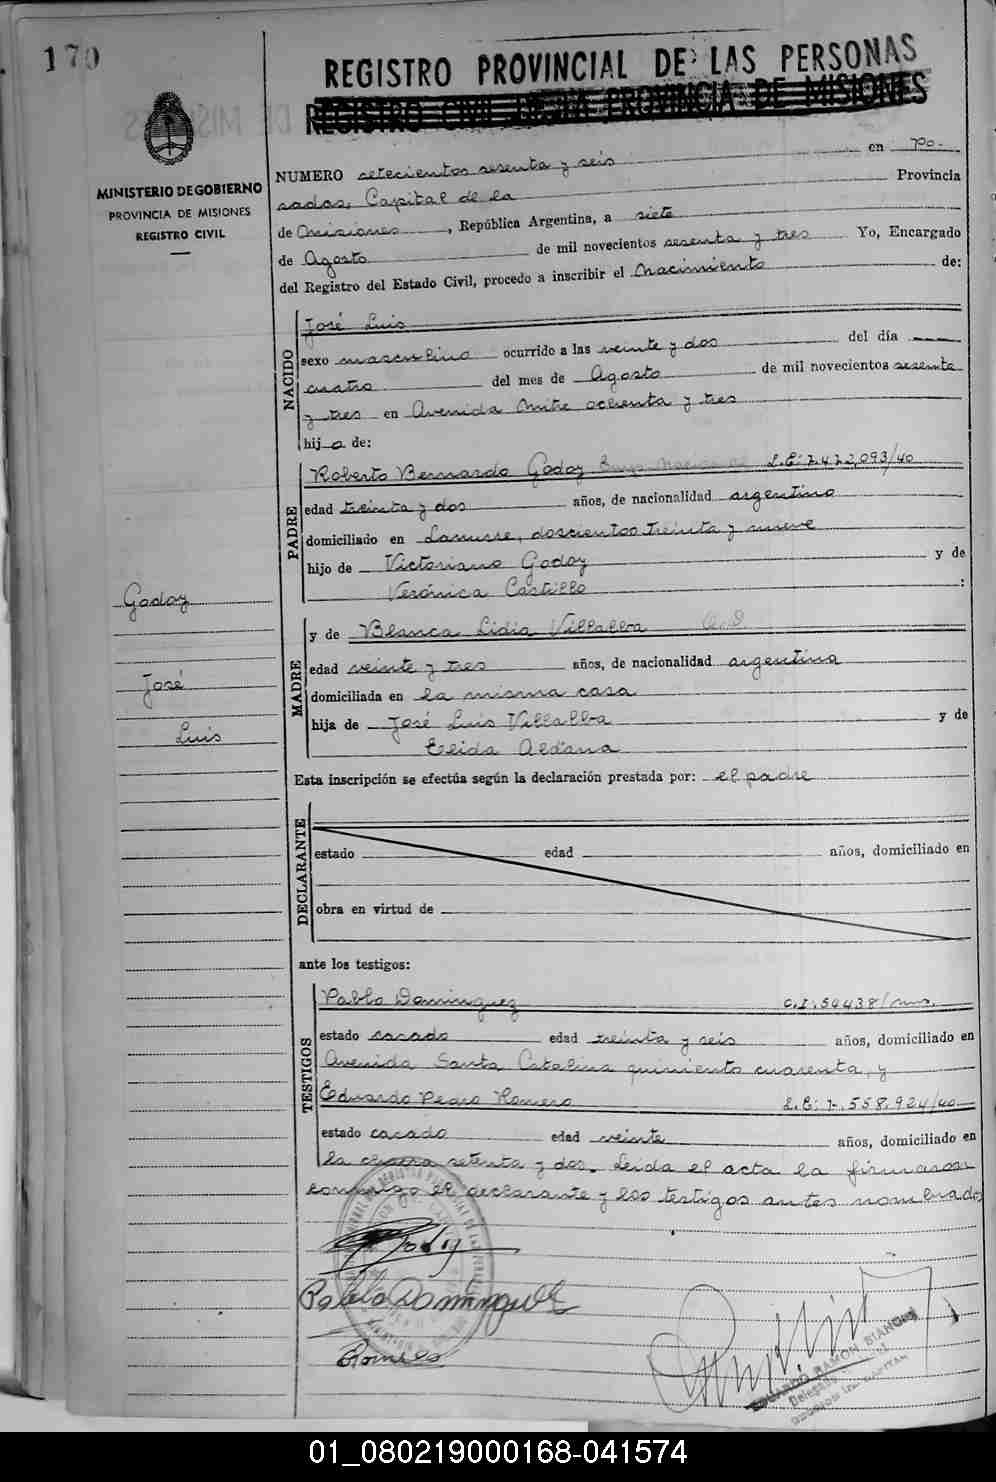 170
REGISTRO PROVINCIAL DE LAS PERSONAS
REGISTRO CIVIL DE LA PROVINCIA DE MISIONES
MINISTERIO DE GOBIERNO
PROVINCIA DE MISIONES
REGISTRO CIVIL
NUMERO setecientos sesenta y seis en Po-
sadas, Capital de la Provincia
de Misiones, República Argentina, a siete
de Agosto de mil novecientos sesenta y tres Yo, Encargado
del Registro del Estado Civil, procedo a inscribir el Nacimiento de:
NACIDO
José Luis
sexo masculino ocurrido a las veinte y dos del día
cuatro del mes de Agosto de mil novecientos sesenta
y tres en Avenida Mitre ochenta y tres
hijo de:
PADRE
Roberto Bernardo Godoy L.E: 7.472,093/40
edad treinta y dos años, de nacionalidad argentino
domiciliado en Lanusse, doscientos treinta y nueve
hijo de Victoriano Godoy y de
Verónica Castillo :
Godoy
José
Luis
MADRE
y de Blanca Lidia Villalba
edad veinte y tres años, de nacionalidad argentina
domiciliada en la misma casa
hija de José Luis Villalba y de
Elida Aldana
Esta inscripción se efectúa según la declaración prestada por: el padre
DECLARANTE
estado edad años, domiciliado en
obra en virtud de
ante los testigos:
TESTIGOS
Pablo Dominguez C.I. 54438/mns.
estado casado edad treinta y seis años, domiciliado en
Avenida Santa Catalina quiniento cuarenta, y
Eduardo Pedro Romero L.E: 7.558.924/40
estado casado edad veinte años, domiciliado en
la chacra setenta y dos. Leida el acta la firmaron
conmigo el declarante y los testigos antes nombrados
Godoy
Pablo Dominguez
Romero
EDUARDO RAMON BIANCHI
Delegado
01_080219000168-041574